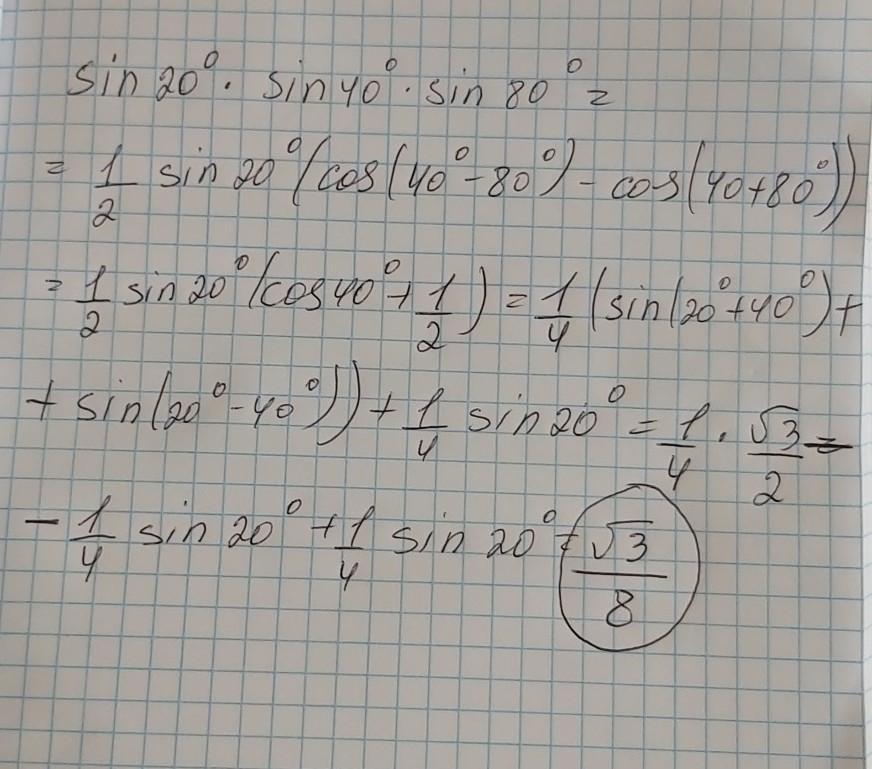 sin 20° · sin 40° · sin 80° =
= 1/2 sin 20° (cos(40° - 80°) - cos(40 + 80°))
= 1/2 sin 20° (cos 40° + 1/2) = 1/4 (sin(20° + 40°) +
+ sin(20° - 40°)) + 1/4 sin 20° = 1/4 · √3/2 -
- 1/4 sin 20° + 1/4 sin 20° = √3/8